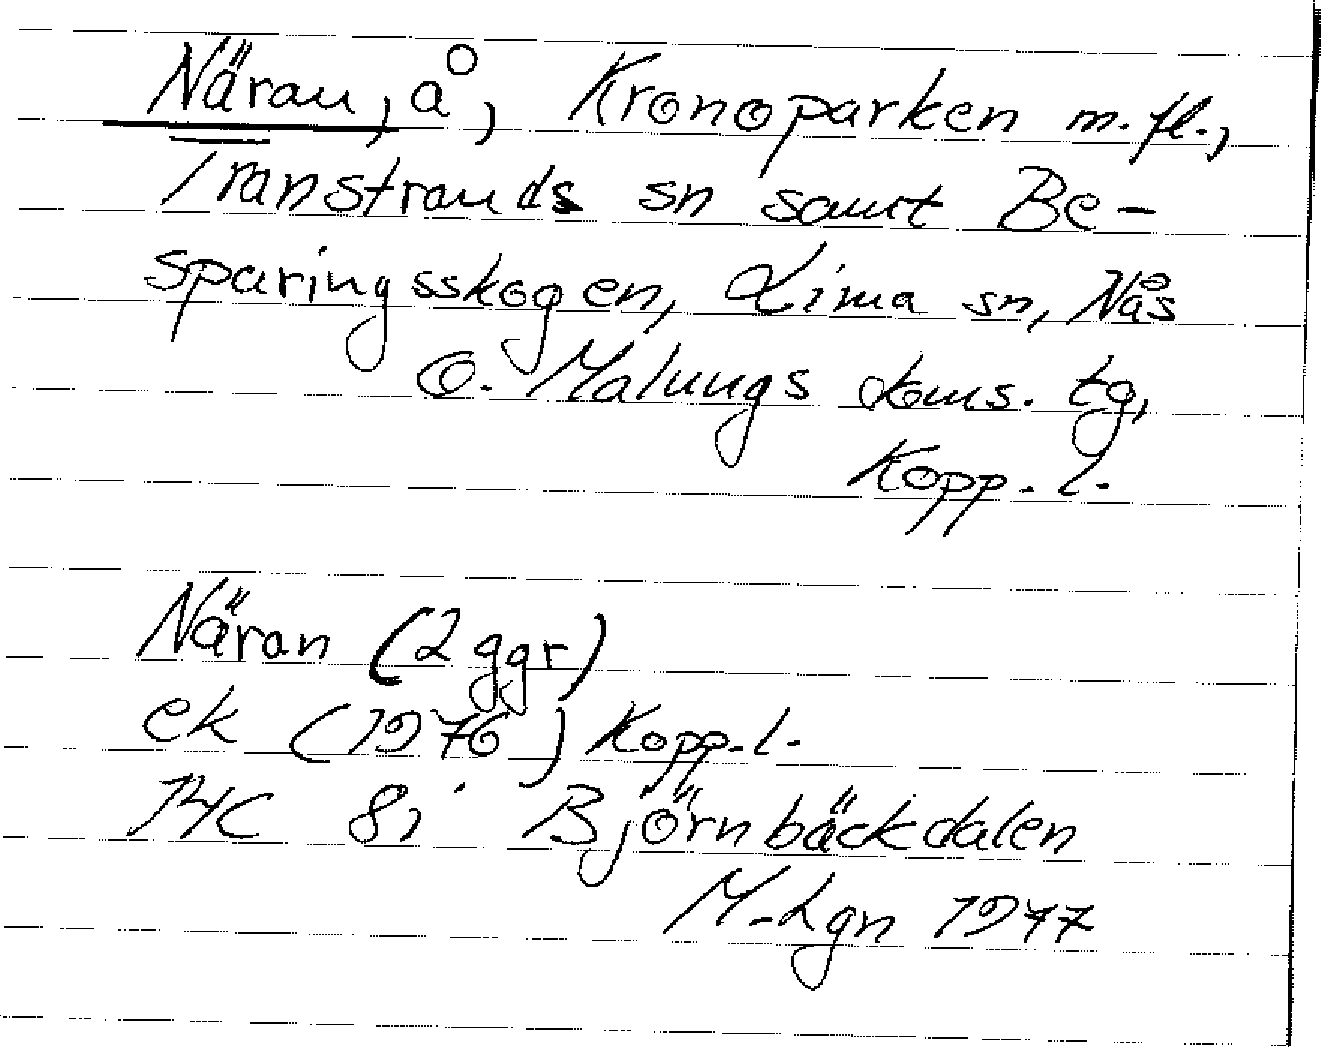 Näran, å, Kronoparken m.fl.,
Transtrands sn samt Be-
sparingsskogen, Lima sn, Nås
o. Malungs doms. tg,
Kopp. l.
Näran (2 ggr)
ek (1976) Kopp. l.
14C 8i Björnbäckdalen
M-Lgn 1977